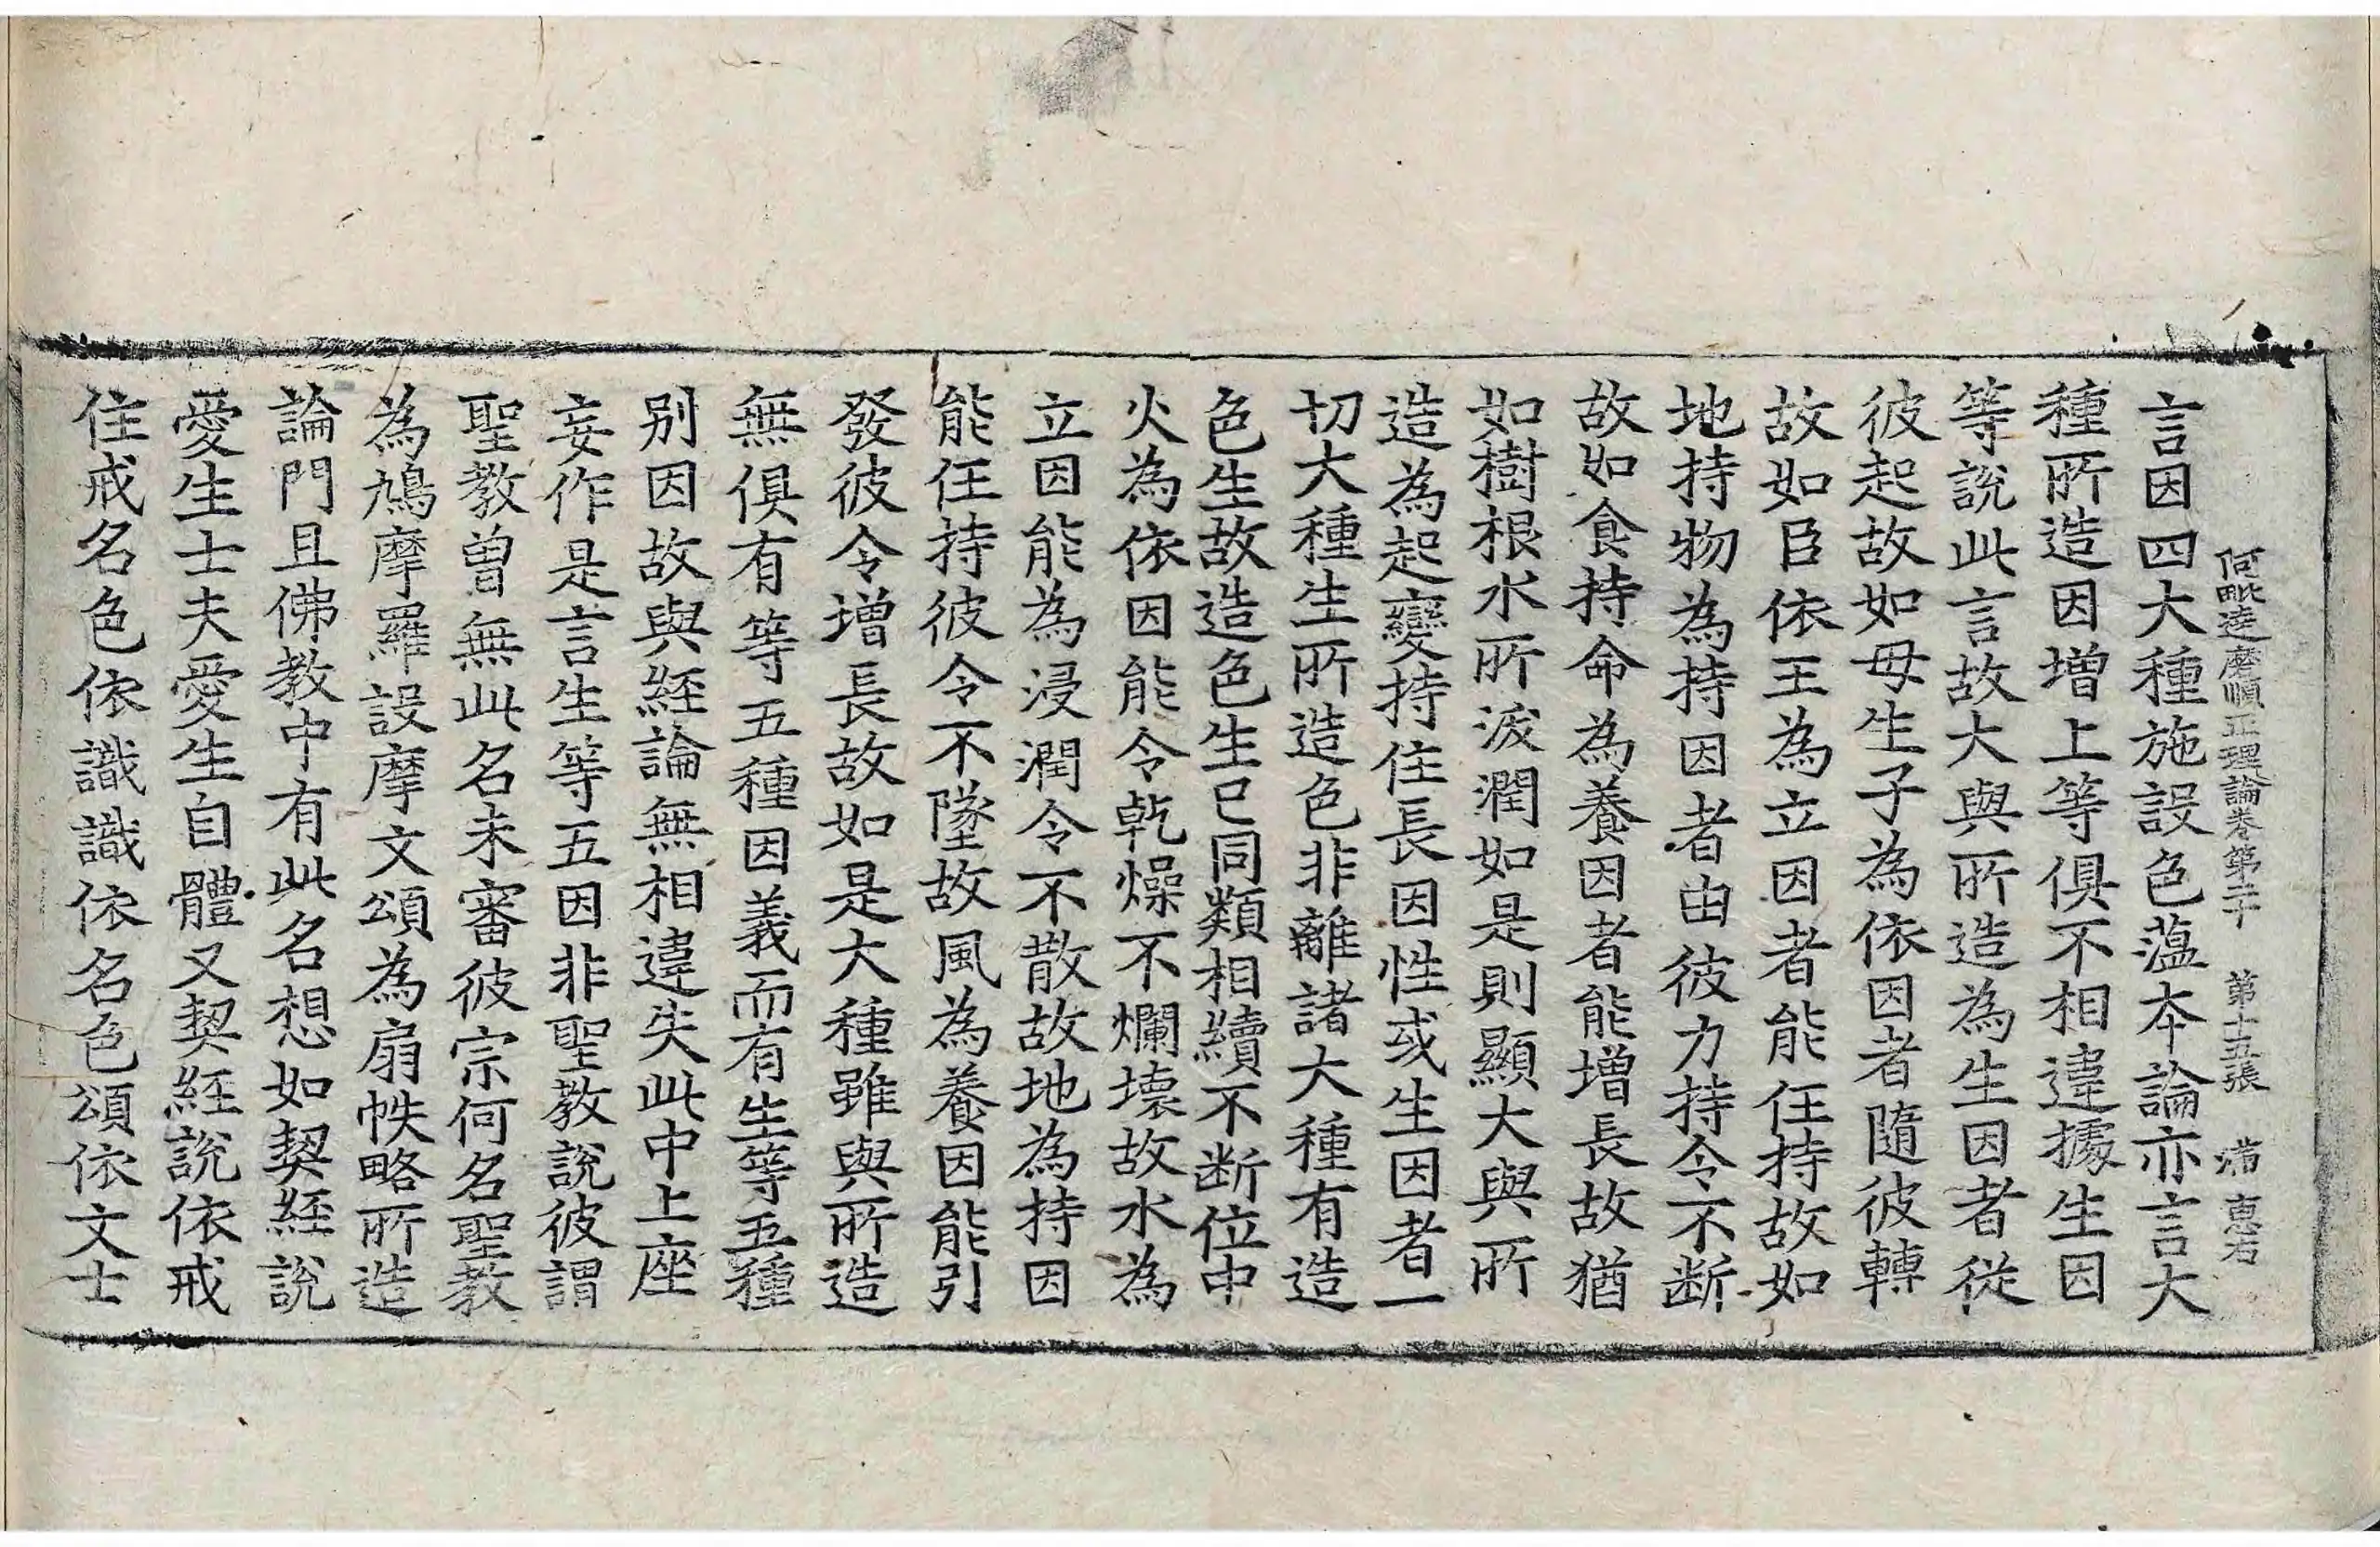 阿毗達磨順正理論卷第二十　第十五張　　惠右
言因四大種施設色薀本論亦言大
種所造因增上等俱不相違據生因
等說此言故大與所造為生因者從
彼起故如母生子為依因者隨彼轉
故如臣依王為立因者能任持故如
地持物為持因者由彼力持令不断
故如食持命為養因者能增長故猶
如樹根水所浸潤如是則顯大與所
造為起變持住長因性或生因者一
切大種生所造色非離諸大種有造
色生故造色生已同類相續不断位中
火為依因能令乾燥不爛壞故水為
立因能為浸潤令不散故地為持因
能任持彼令不墜故風為養因能引
發彼令增長故如是大種雖與所造
無俱有等五種因義而有生等五種
别因故與經論無相違失此中上座
妄作是言生等五因非聖教說彼謂
聖教曽無此名未審彼宗何名聖教
為鳩摩羅設摩文頌為扇帙略所造
論門且佛教中有此名想如契經說
愛生士夫愛生自體又契經說依戒
住戒名色依識識依名色頌依文士